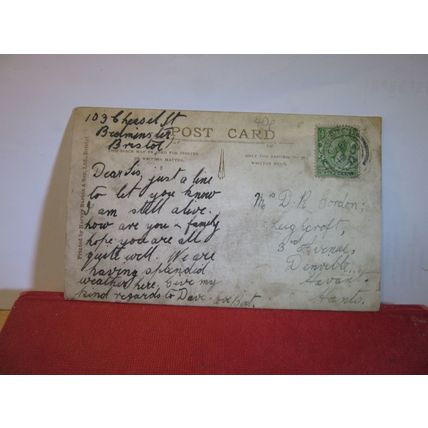 103 Chessel St
Bedminster
Bristol
40p
POST CARD
THIS SPACE MAY BE USED FOR PRINTED OR WRITTEN MATTER.
ONLY FOR ADDRESS TO BE WRITTEN HERE.
Dear Sis, just a line
to let you know
I am still alive.
how are you & family
hope you are all
quite well. We are
having splendid
weather here, Give my
kind regards to Dave. Bert.
Mrs D. R. Gordon,
3rd Avenue,
Denville,
Havant,
Hants.
Printed by Harvey Barton & Son, Ltd., Bristol.